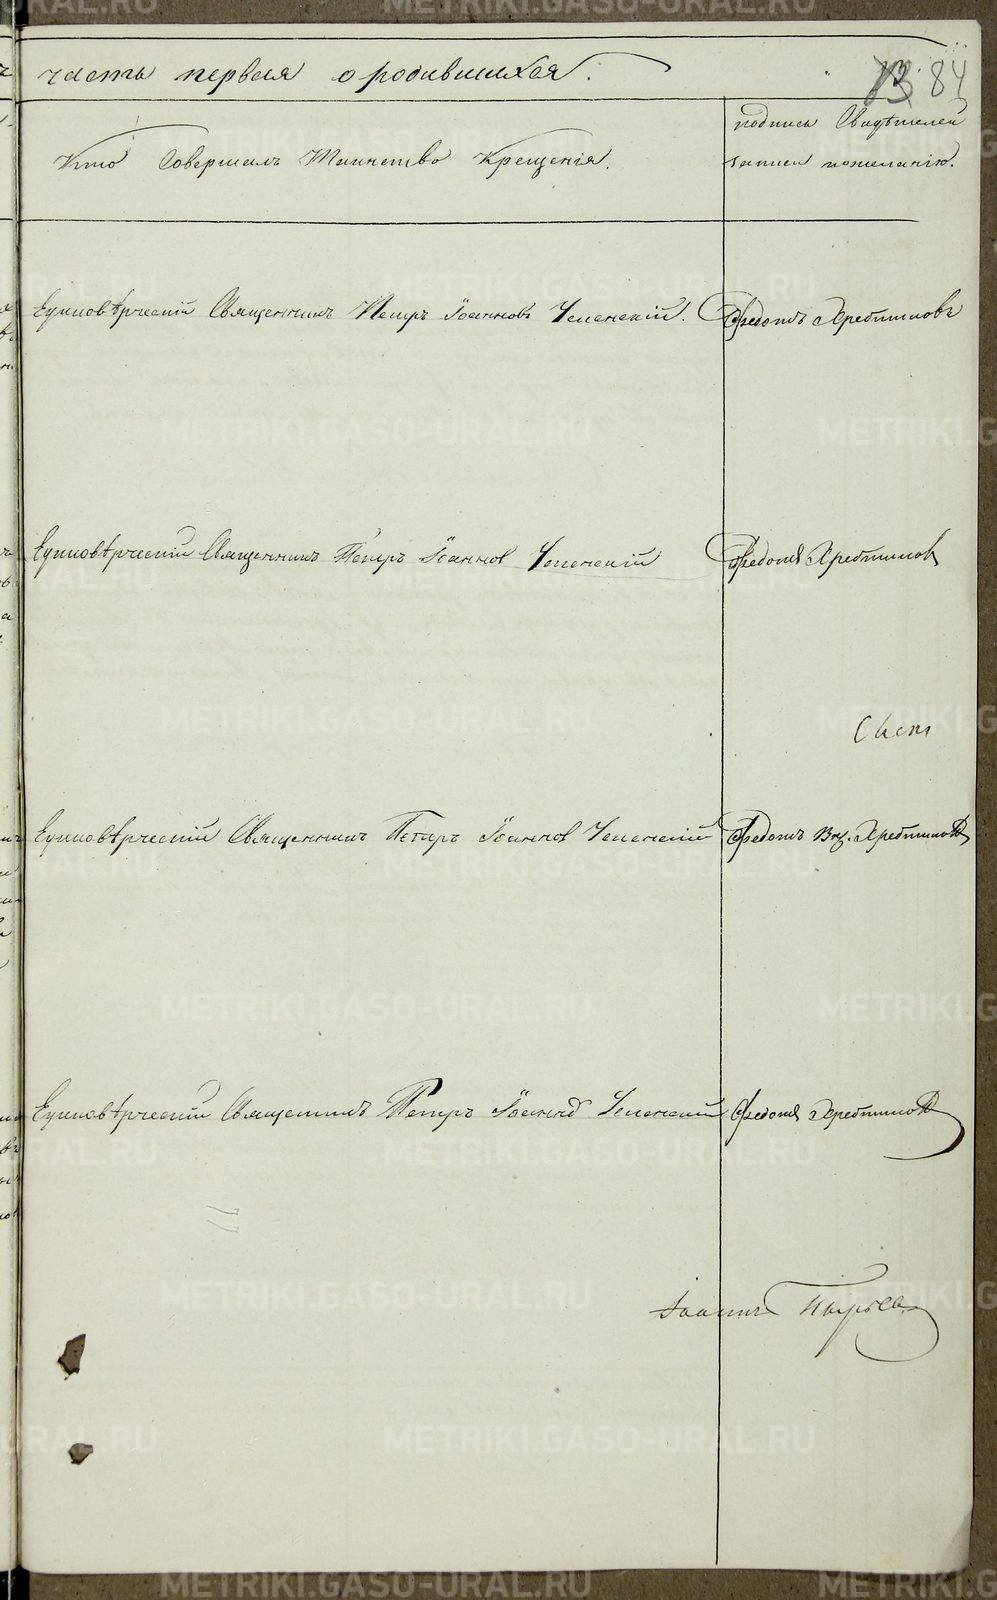 часть первая о родившихся.
13 84
Кто Совершалъ Таинство Крещенія.
подпись Свидѣтелей
записи пожеланію.
Единовѣрческій Священникъ Петръ Іоанновъ Успенскій. Федотъ Хребтиковъ
Единовѣрческій Священникъ Петръ Іоаннов Успенскій Федотъ Хребтиков
Единовѣрческій Священникъ Петръ Іоаннов Успенскій Федотъ Хребтиков
Единовѣрческій Священникъ Петръ Іоаннов Успенскій Федотъ Хребтиков
Іоаннъ
METRIKI.GASO-URAL.RU